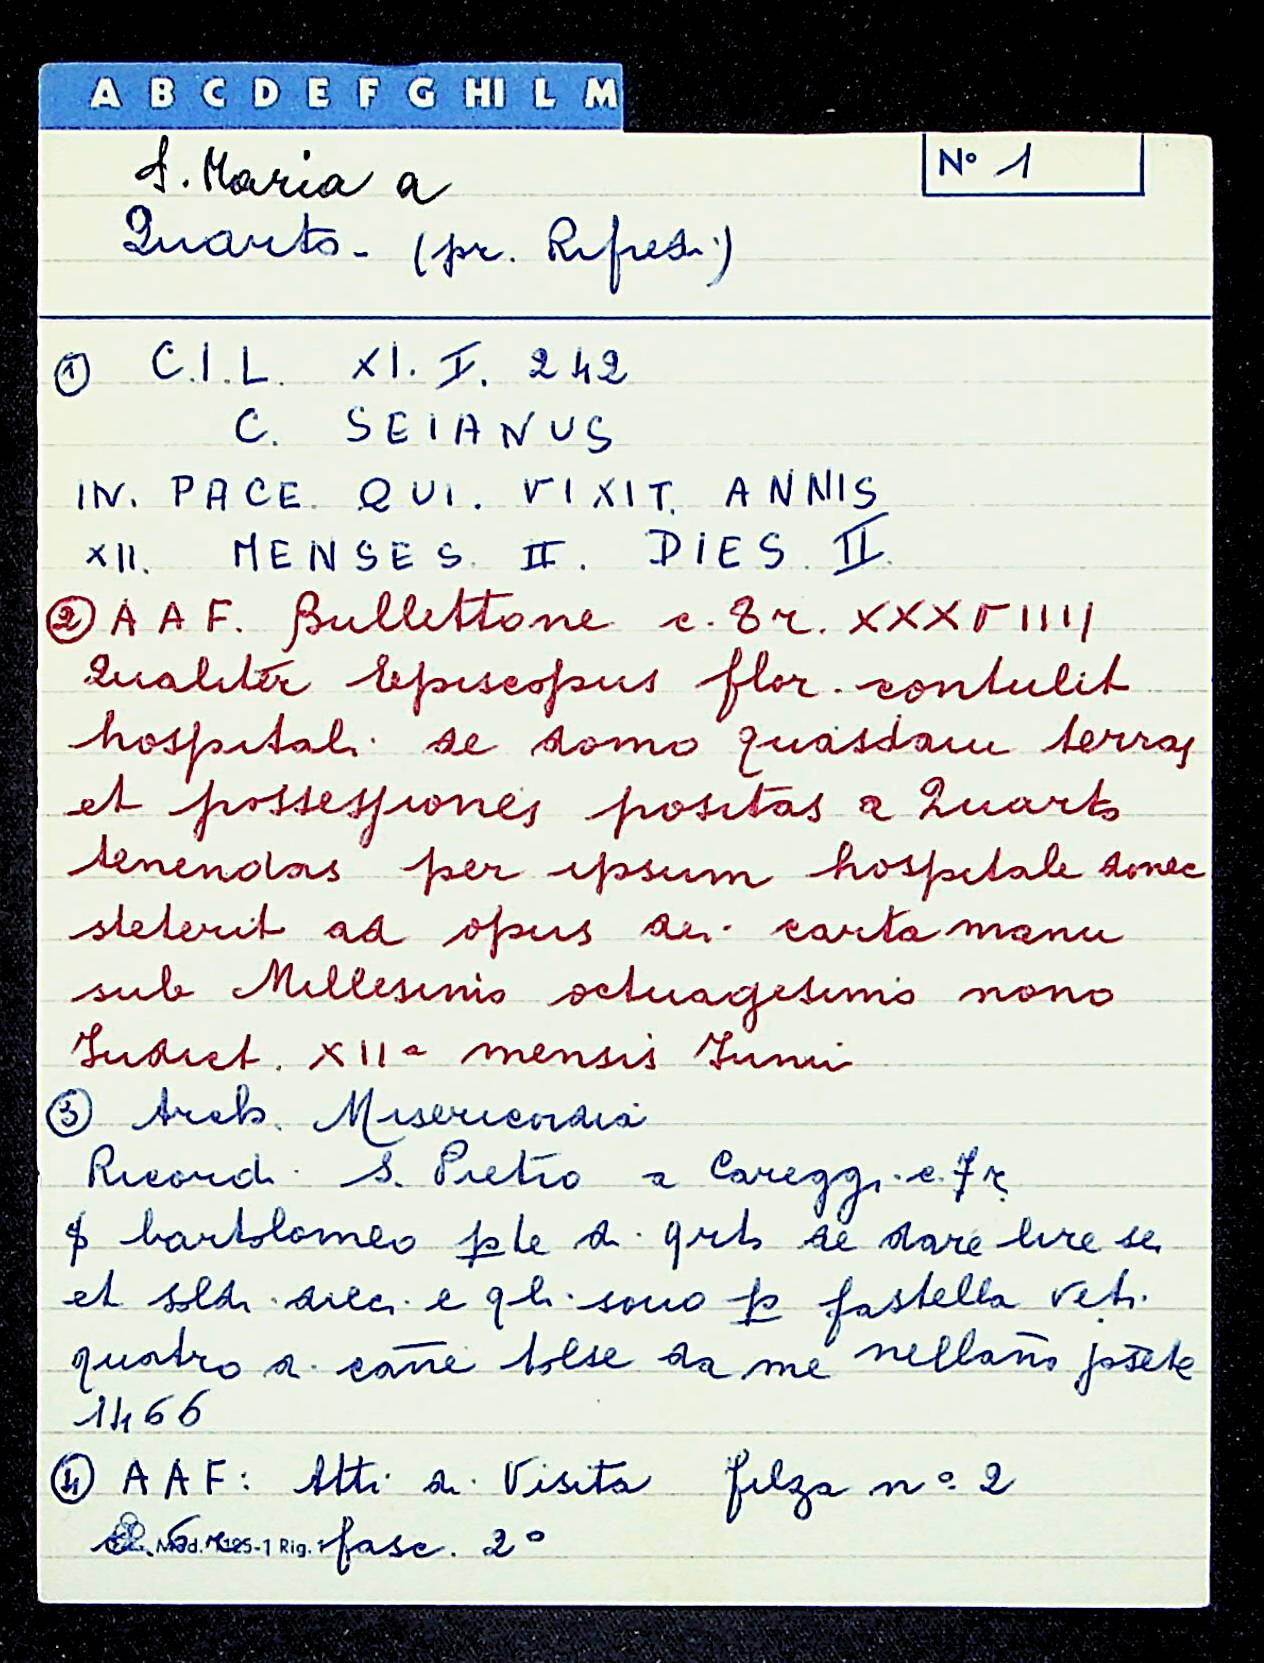 A B C D E F G HI L M
S. Maria a
Nº 1
Quarto - (pr. Rifredi)
① C.I.L. XI. I. 242
C. SEIANUS
IN. PACE. QUI. VIXIT. ANNIS
XII. MENSES. II. DIES. II.
② A A F. Bullettone c. 8 r. XXXVIIII
Qualiter Episcopus flor. contulit
hospitali de domo quasdam terras
et possessiones positas a Quarto
tenendas per ipsum hospitale donec
steterit ad opus dei. carta manu
sub Millesimo octuagesimo nono
Indict. XIIª mensis Junii
③ Arch. Misericordia
Ricordi S. Pietro a Careggi. c. 7 r
bartolomeo ple di qrto de dare lire sei
et soldi dieci e qli sono p fastella veti
quatro di cañe tolse da me nellaño psēte
1466
④ A A F: Atti di Visita filza nº 2
c. 6 r fasc. 2º
Mod. 125-1 Rig.